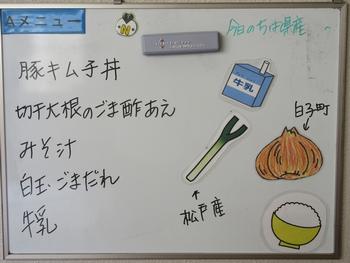 Aメニュー
今日のちば県産
豚キム子丼
切干大根のごま酢あえ
みそ汁
白玉ごまだれ
牛乳
牛乳
白子町
松戸産